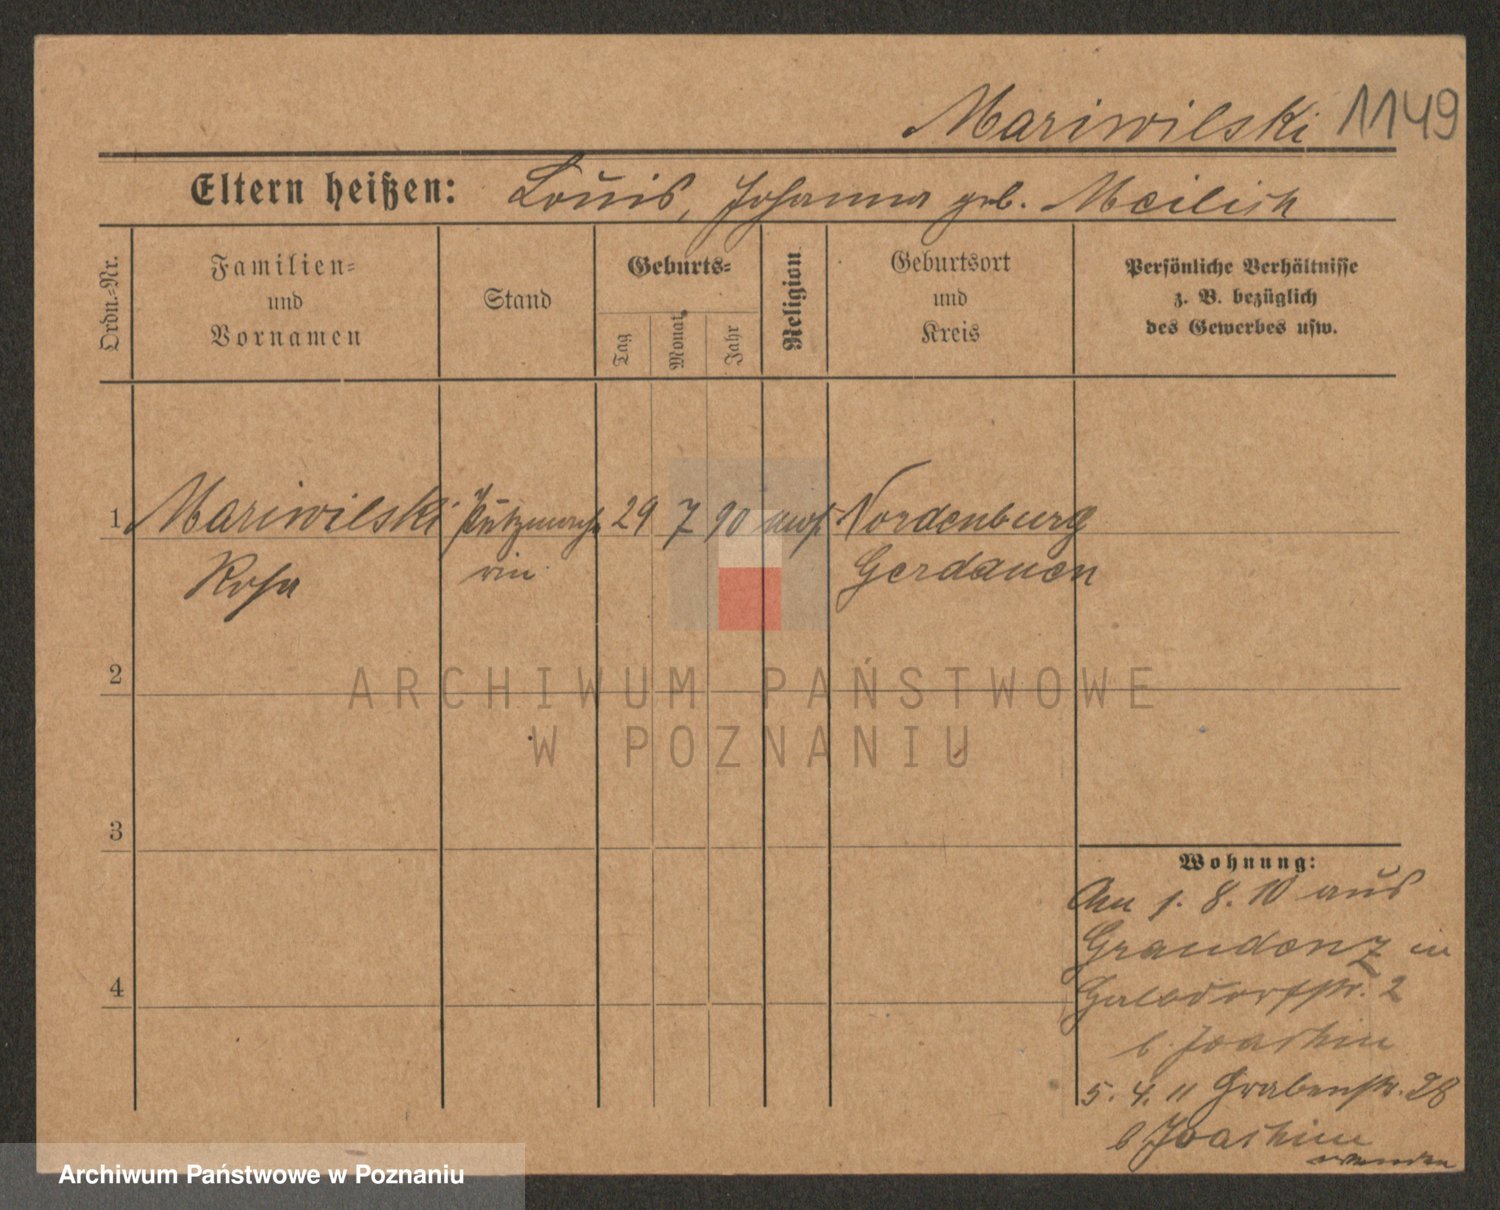 Mariwilski 1149
Eltern heißen: Louis, Johanna geb. Meilich
Ordn.-Nr.
Familien-
und
Vornamen
Stand
Geburts-
Tag
Monat
Jahr
Religion
Geburtsort
und
Kreis
Persönliche Verhältnisse
z. B. bezüglich
des Gewerbes usw.
1 Mariwilski Putzmache 29 7 90 Nordenburg
Rosa rin Gerdauen
2
3
4
Wohnung:
An 1. 8. 10 aus
Graudenz in
Galsdorfstr. 2
b. Joachim
5. 4. 11 Grabenstr. 28
b Joachim
wenden
ARCHIWUM PAŃSTWOWE
W POZNANIU
Archiwum Państwowe w Poznaniu